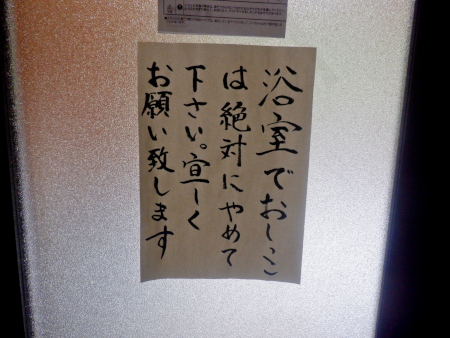 浴室でおしっこ
は絶対にやめて
下さい。宜しく
お願い致します